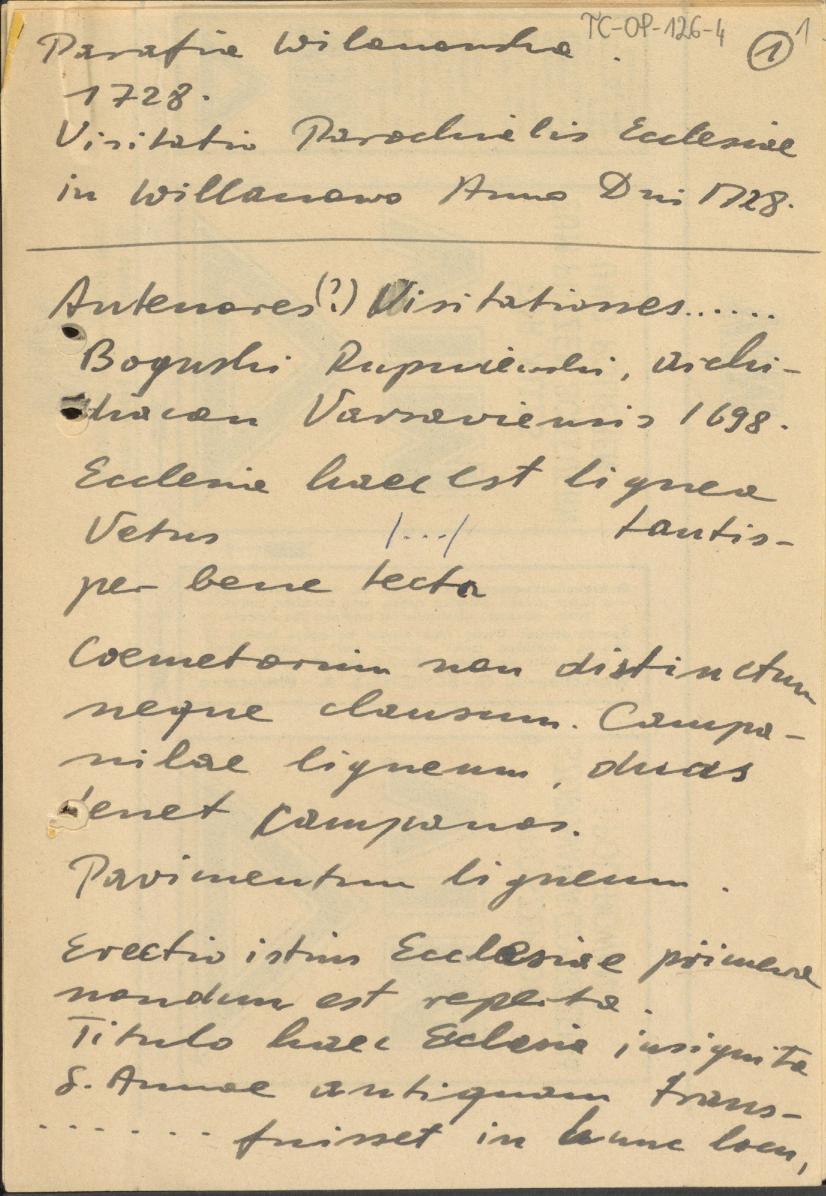 TC-OP-126-4 1 1
Parafia Wilanowska.
1728.
Visitatio Parochielis Ecclesiae
in Willanowo Anno Dni 1728.
Antenores (?) Visitationes......
Boguski Rupniewski, archi-
diacon Varsaviensis 1698.
Ecclesia haec est lignea
Vetus /.../ tantis-
per bene tecta
Coemetorium non distinctum
neque clausum. Campa-
nilae ligneum, duas
tenet campanas.
Pavimentum ligneum.
Erectio istius Ecclesiae
nondum est
Titulo haec Ecclesia insignita
S. Annae antiquam trans-
....... fuisset in hunc locu,